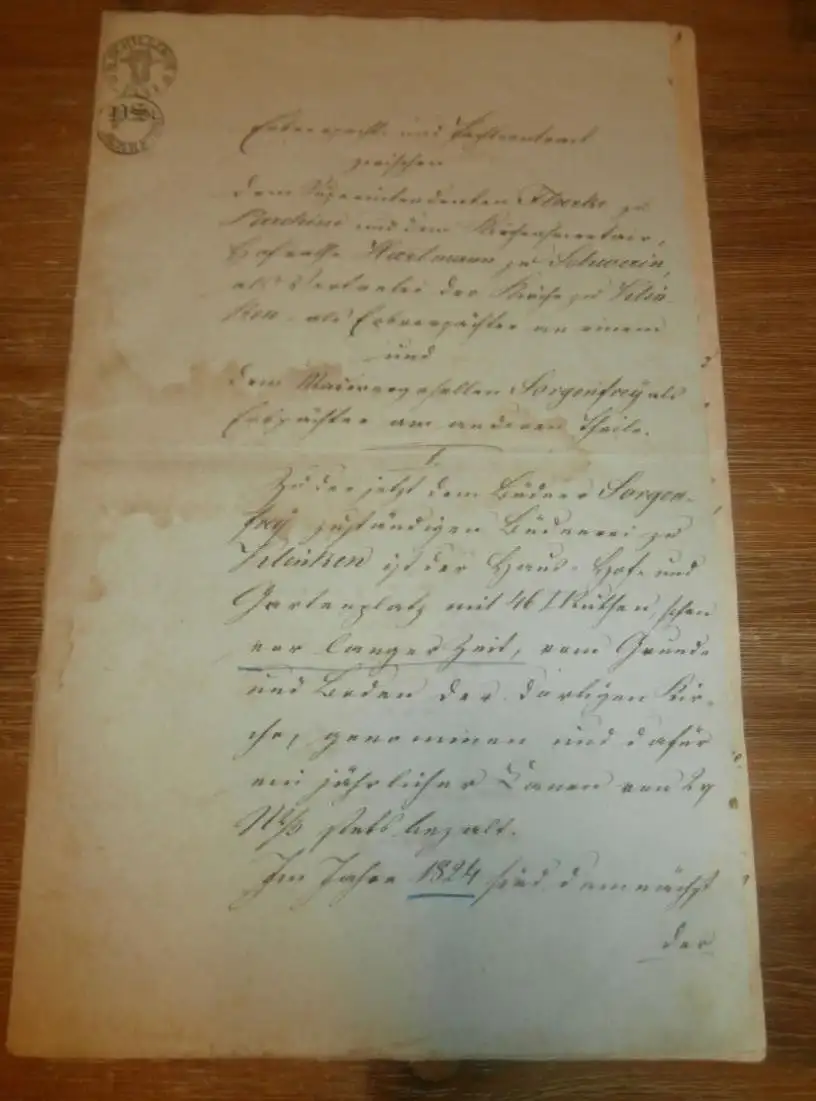 Erbverpacht- und Pachtcontract
zwischen
dem Superintendenten Floerke zu
Parchim und dem Kirchensecretair,
Hofrathe Martmann zu Schwerin,
als Vertreter der Kirche zu Klin-
ken als Erbverpächter an einem
und
dem Maurergesellen Sorgenfrey als
Erbpächter am anderen Theile.
1.
Zu der jetzt dem Büdner Sorgen-
frey zuständigen Büdnerei zu
Klinken ist der Haus- Hof- und
Gartenplatz mit 46 □Ruthen, schon
vor langer Zeit, vom Grund
und Boden der dortigen Kir-
che, genommen und dafür
ein jährlicher Canon von 24
stets bezahlt.
Im Jahre 1824 sind demnächst
der